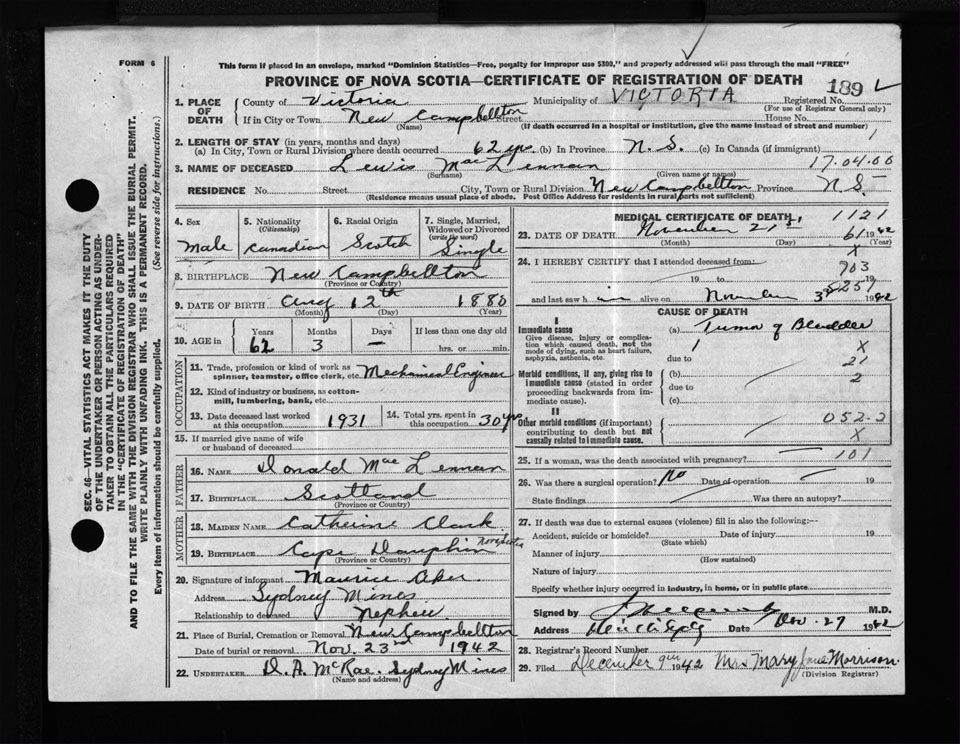 FORM 6
This form if placed in an envelope, marked "Dominion Statistics—Free, penalty for improper use $300," and properly addressed will pass through the mail "FREE"
PROVINCE OF NOVA SCOTIA—CERTIFICATE OF REGISTRATION OF DEATH
189
1. PLACE OF DEATH
County of Victoria Municipality of VICTORIA Registered No.
(For use of Registrar General only)
If in City or Town New Campbellton Street House No.
(Name) (If death occurred in a hospital or institution, give the name instead of street and number)
2. LENGTH OF STAY (in years, months and days)
(a) In City, Town or Rural Division where death occurred 62 yrs. (b) In Province N.S. (c) In Canada (if immigrant)
3. NAME OF DECEASED Lewis MacLennan 17.04.00
(Surname) (Given name or names)
RESIDENCE No. Street City, Town or Rural Division New Campbellton Province N.S.
(Residence means usual place of abode. Post Office Address for residents in rural parts not sufficient)
4. Sex
Male
5. Nationality
(Citizenship)
Canadian
6. Racial Origin
Scotch
7. Single, Married, Widowed or Divorced
(write the word)
Single
8. BIRTHPLACE New Campbellton
(Province or Country)
9. DATE OF BIRTH Aug 12th 1880
(Month) (Day) (Year)
10. AGE in Years Months Days If less than one day old
62 3 — hrs. or min.
OCCUPATION
11. Trade, profession or kind of work as spinner, teamster, office clerk, etc. Mechanical Engineer
12. Kind of industry or business, as cotton-mill, lumbering, bank, etc.
13. Date deceased last worked at this occupation 1931
14. Total yrs. spent in this occupation 30 yrs
15. If married give name of wife or husband of deceased
FATHER
16. NAME Donald MacLennan
17. BIRTHPLACE Scotland
(Province or Country)
MOTHER
18. MAIDEN NAME Catherine Clark
19. BIRTHPLACE Cape Dauphin Nova Scotia
(Province or Country)
20. Signature of informant Maurice Aker
Address Sydney Mines
Relationship to deceased Nephew
21. Place of Burial, Cremation or Removal New Campbellton
Date of burial or removal Nov. 23rd 1942
22. UNDERTAKER D. A. McRae. Sydney Mines
(Name and address)
MEDICAL CERTIFICATE OF DEATH
1121
23. DATE OF DEATH November 21st 1942
(Month) (Day) (Year)
61
X
24. I HEREBY CERTIFY that I attended deceased from:
703
19 to 19
8259
and last saw him alive on November 3rd 1942
CAUSE OF DEATH
I
Immediate cause
Give disease, injury or complication which caused death, not the mode of dying, such as heart failure, asphyxia, asthenia, etc.
(a) Tumor of Bladder
1 X
due to 21
Morbid conditions, if any, giving rise to immediate cause (stated in order proceeding backwards from immediate cause).
(b) 2
due to
(c)
II
Other morbid conditions (if important) contributing to death but not causally related to immediate cause.
052-2
X
101
25. If a woman, was the death associated with pregnancy?
26. Was there a surgical operation? No Date of operation 19
State findings Was there an autopsy?
27. If death was due to external causes (violence) fill in also the following:—
Accident, suicide or homicide? Date of injury 19
(State which)
Manner of injury
(How sustained)
Nature of injury
Specify whether injury occurred in industry, in home, or in public place
Signed by M.D.
Address Date Nov. 27 1942
28. Registrar's Record Number
29. Filed December 9th 1942 Mrs Mary Jane Morrison
(Division Registrar)
SEC. 46—VITAL STATISTICS ACT MAKES IT THE DUTY OF THE UNDERTAKER OR PERSON ACTING AS UNDERTAKER TO OBTAIN ALL THE PARTICULARS REQUIRED IN THE "CERTIFICATE OF REGISTRATION OF DEATH"
AND TO FILE THE SAME WITH THE DIVISION REGISTRAR WHO SHALL ISSUE THE BURIAL PERMIT.
WRITE PLAINLY WITH UNFADING INK. THIS IS A PERMANENT RECORD.
Every item of information should be carefully supplied. (See reverse side for instructions.)